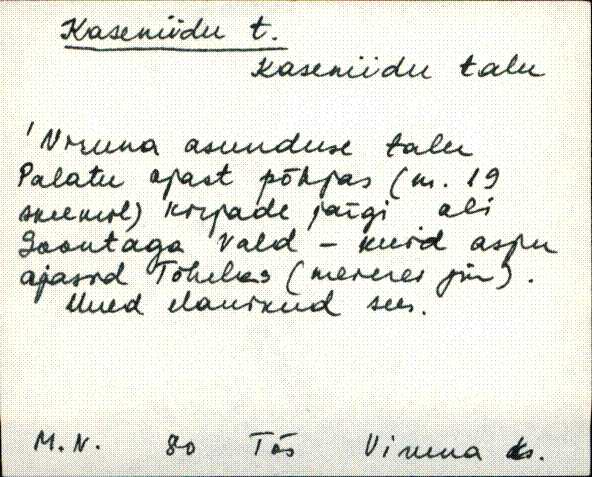 Kaseniidu t.
Kaseniidu talu
'Viruna asunduse talu
Palatu ojast põhjas (nr. 19
skeemil) kirjade järgi oli
Soontaga vald - kuid aspu
ajasid Tõhelas ( jür).
Uued elanikud sees.
M.N. 80 Tõs Viruna ks.